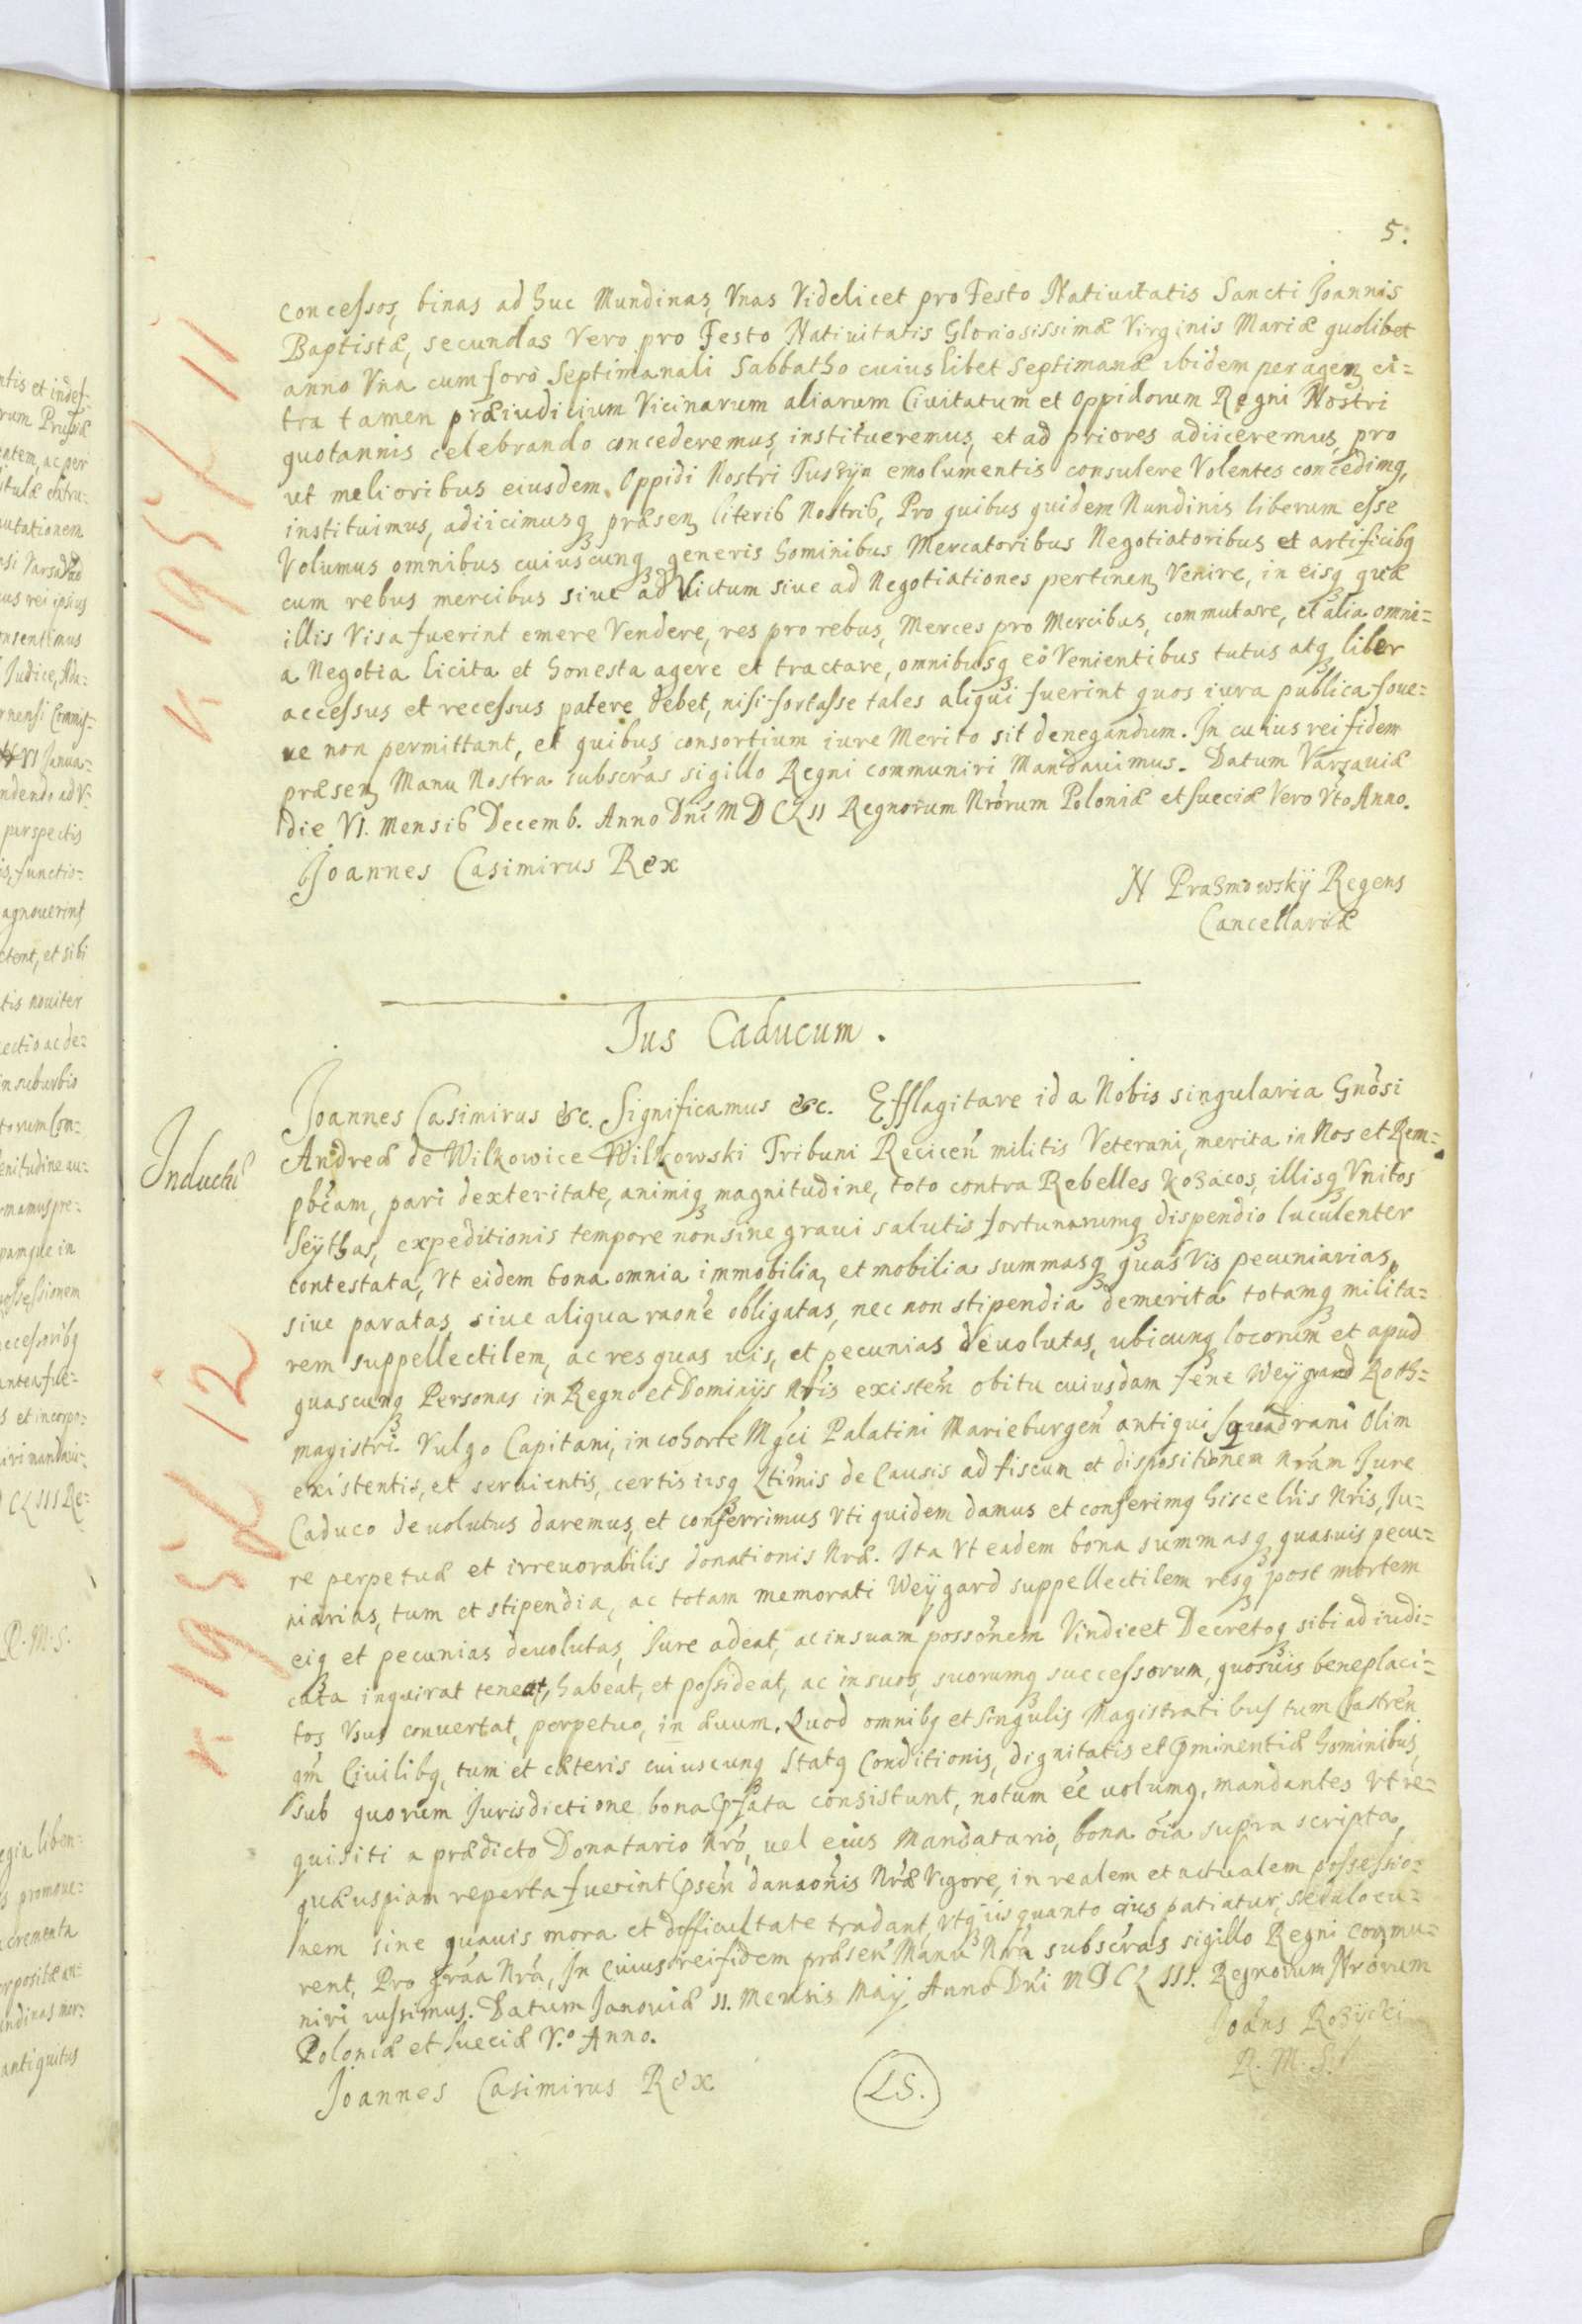 5.
concessos, binas ad huc Nundinas, Vnas Videlicet pro Festo Natiuitatis Sancti Joannis
Baptistæ, secundas Vero pro Festo Natiuitatis Gloriosissimæ Virginis Mariæ quolibet
anno Vna cum foro Septimanali Sabbatho cuius libet Septimanæ ibidem peragen ci=
tra tamen præiudicium Vicinarum aliarum Ciuitatum et Oppidorum Regni Nostri
quotannis celebrando concederemus, institueremus, et ad priores adiiceremus, pro
ut melioribus eiusdem Oppidi Nostri Tuszyn emolumentis consulere Volentes concedimq,
instituimus, adiicimusq præsen literis Nostris, Pro quibus quidem Nundinis liberum esse
Volumus omnibus cuiuscunq generis hominibus Mercatoribus Negotiatoribus et artificibq
cum rebus mercibus siue ad Victum siue ad Negotiationes pertinen Venire, in eisq quæ
illis Visa fuerint emere Vendere, res pro rebus, Merces pro Mercibus, commutare, et alia omni=
a Negotia licita et honesta agere et tractare, omnibusq eò Venientibus tutus atq liber
accessus et recessus patere debet, nisi fortasse tales aliqui fuerint quos iura publica foue=
re non permittant, et quibus consortium iure Merito sit denegandum. In cuius rei fidem
præsen Manu Nostra subscras sigillo Regni communiri Mandauimus. Datum Varsauiæ
die VI. Mensis Decemb. Anno Dni MDCLII Regnorum Nrorum Poloniæ et Sueciæ Vero Vto Anno.
Joannes Casimirus Rex
N Prazmowskij Regens
Cancellariæ
Jus Caducum.
Inducti
Joannes Casimirus &c. Significamus &c. Efflagitare id a Nobis singularia Gnosi
Andreæ de Wilkowice Wilkowski Tribuni Recicen militis Veterani, merita in Nos et Rem=
pbcam, pari dexteritate, animiq magnitudine, toto contra Rebelles Kozacos, illisq Vnitos
Scythas, expeditionis tempore non sine graui salutis fortunarumq dispendio luculenter
contestata, Vt eidem bona omnia immobilia, et mobilia summasq quas Vis pecuniarias,
siue paratas siue aliqua raone obligatas, nec non stipendia demerita totamq milita=
rem suppellectilem, ac res quas uis, et pecunias deuolutas, ubicunq locorum et apud
quascunq Personas in Regno et Dominijs Nris existen obitu cuiusdam Gene Weygrand Roth=
magistri. Vulgo Capitani, in cohorte Mgci Palatini Marieburgen antiqui Squadrani Olim
existentis, et seruientis, certis iisq Ltimis de Causis ad fiscum et dispositionem nram Jure
Caduco deuolutus daremus, et conferrimus Vti quidem damus et conferimq hisce lris Nris, Ju=
re perpetuæ et irreuorabilis donationis Nræ. Ita Vt eadem bona summasq quasuis pecu=
niarias, tum et stipendia, ac totam memorati Weÿgard suppellectilem resq post mortem
eiq et pecunias deuolutas, Jure adeat, ac in suam possonem Vindicet Decretoq sibi adiudi=
cata inquirat teneat, habeat, et possideat, ac in suos, suorumq successorum, quosuis beneplaci=
tos Vsus conuertat, perpetuo, in æuum. Quod omnibq et singulis Magistratibus tum Castren
qm Ciuilibq, tum et cæteris cuiuscunq Statq Conditionis, dignitatis et pminentiæ hominibus,
sub quorum Jurisdictione bona pfata consistunt, notum ee uolumq, mandantes Vt re=
quisiti a prædicto Donatario Nro, uel eius Mandatario, bona oia supra scripta,
quæuspiam reperta fuerint psen danaonis Nræ Vigore, in realem et actualem possessio=
nem sine quauis mora et difficultate tradant, Vtq iis quanto cius patiatur, sedulo cu=
rent, Pro græa Nra, In cuius rei fidem præsen Manu Nra subscras sigillo Regni commu=
niri iussimus. Datum Janouiæ 11. Mensis Maij Anno Dni MDCLIII. Regnorum Nrorum
Poloniæ et Sueciæ V.o Anno.
Joannes Casimirus Rex
LS.
Joans Rozycki
R. M. S.